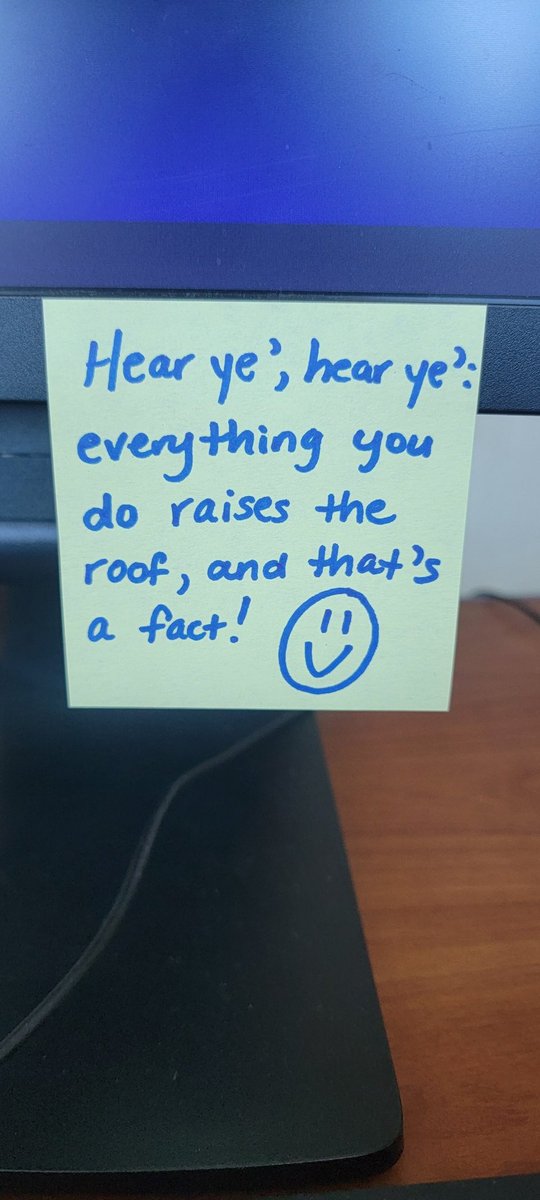 Hear ye', hear ye':
everything you
do raises the
roof, and that's
a fact!